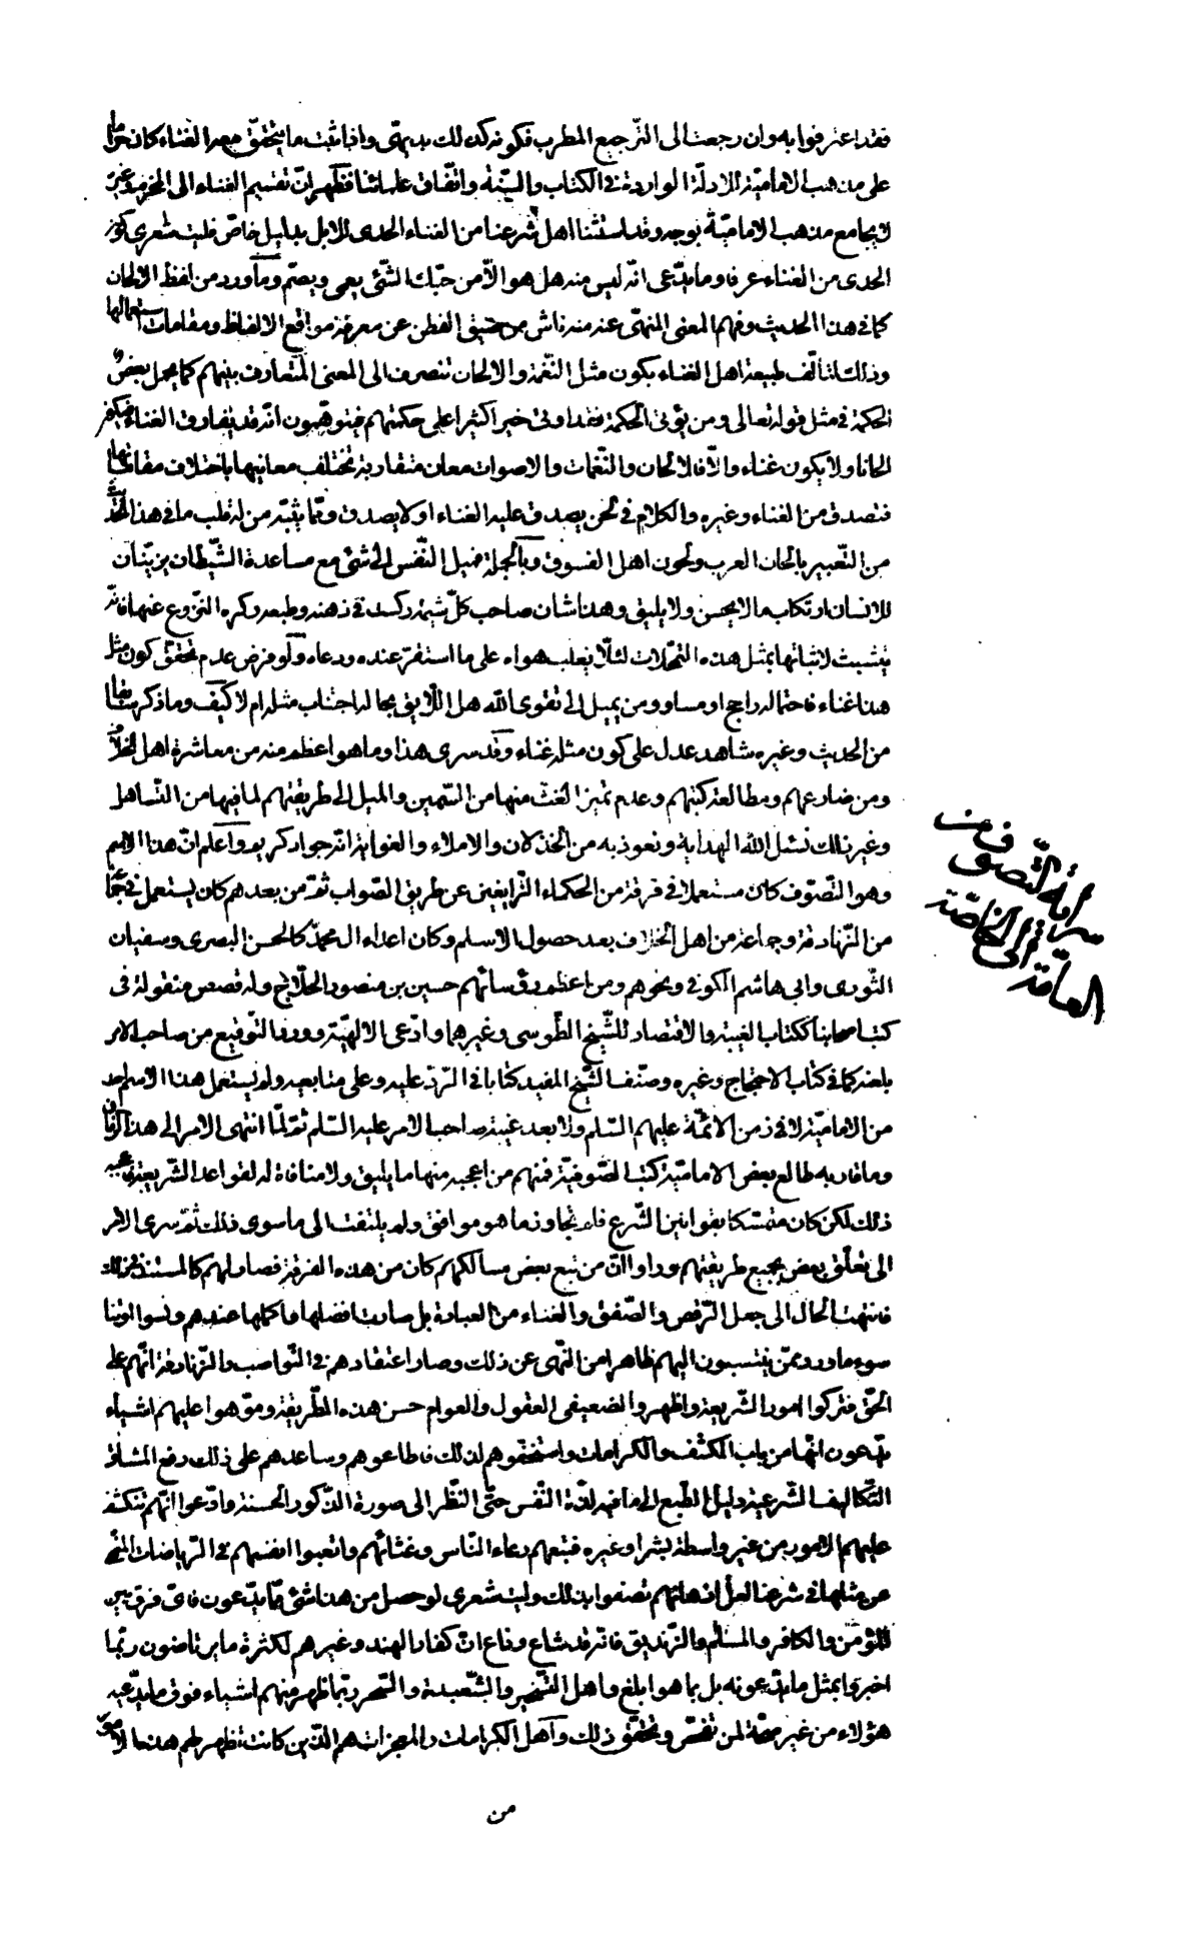 فقد اعترفوا به وان رجعت الى الترجيع المطرب فكونه كذلك بديهىّ واذا ثبت ما يتحقّق معه الغناء كان حراما
على مذهب الاماميّة للادلّة الواردة فى الكتاب والسّنّة واتّفاق علمائنا فظهر انّ تقسيم الغناء الى المحرّم وغيره
لا يجامع مذهب الاماميّة بوجه وقد استثنا اهل شرعنا من الغناء الحدى للابل بدليل خاصّ فليت شعرى كون
الحدى من الغناء عرفا وما يدّعى انّه ليس منه هل هو الّا من حبّك الشّئ يعمى ويصمّ وما ورد من لفظ الالحان
كما فى هذا الحديث وفهم المعنى المنهىّ عنه منه ناش من ضيق الفطن عن معرفة مواقع الالفاظ ومقامات استعمالها
وذلك لتألّف طبيعة اهل الغناء بكون مثل النّغمة والالحان تنصرف الى المعنى المتعارف بينهم كما يحمل بعض
الحكمة فى مثل قوله تعالى ومن يؤتى الحكمة فقد اوتى خيرا كثيرا على حكمتهم فيتوهّمون انّه قد يفارق الغناء فيكون
الحانا ولا يكون غناء والّا فالالحان والنّغمات والاصوات معان متقاربة تختلف معانيها باختلاف مقاماتها
فتصدق من الغناء وغيره والكلام فى لحن يصدق عليه الغناء او لا يصدق وممّا يثبته من له قلب ما فى هذا الحديث
من التّعبير بالحان العرب ولحون اهل الفسوق وبالجملة فميل النّفس الى شئ مع مساعدة الشّيطان يزيّنان
للانسان ارتكاب ما لا يحسن ولا يليق وهذا شان صاحب كلّ شيمة ركدت فى ذهنه وطبعه وكره النّزوع عنها فانّه
يتشبث لاثباتها بمثل هذه التمحّلات لئلّا يغلب هواه على ما استقرّ عنده ودعاه ولو فرض عدم تحقّق كون مثل
هذا غناء فاحتماله راجح او مساو ومن يميل الى تقوى الله هل اللّايق بحاله اجتناب مثله ام لا كيف وما ذكر سابقا
من الحديث وغيره شاهد عدل على كون مثله غناء وقد سرى هذا وما هو اعظم منه من معاشرة اهل الخلاف
ومن ضارعهم ومطالعة كتبهم وعدم تميز الغثّ منها من السّمين والميل الى طريقتهم لما فيها من التّساهل
وغير ذلك نسئل الله الهداية ونعوذ به من الخذلان والاملاء والغواية انّه جواد كريم واعلم انّ هذا الاسم
وهو التّصوّف كان مستعملا فى فرقة من الحكماء الزّايغين عن طريق الصّواب ثمّ من بعدهم كان يستعمل فى جماعة
من الزّنادقة وجماعة من اهل الخلاف بعد حصول الاسلم وكان اعداء ال محمّد كالحسن البصرى وسفيان
الثّورى وابى هاشم الكوفى ونحوهم ومن اعظم رؤسائهم حسين بن منصور الحلّاج وله قصص منقولة فى
كتب اصحابنا ككتاب الغيبة والاقتصاد للشّيخ الطّوسى وغيرهما وادّعى الالهيّة وورد التّوقيع من صاحب الامر
بلعنه كما فى كتاب الاحتجاج وغيره وصنّف الشّيخ المفيد كتابا فى الرّدّ عليه وعلى متابعيه ولم يستعمل هذا الاسم احد
من الاماميّة لا فى زمن الائمّة عليهم السّلم ولا بعد غيبة صاحب الامر عليه السّلم ثمّ لمّا انتهى الامر الى هذا الزّمان
وما قاربه طالع بعض الاماميّة كتب الصّوفيّة فمنهم من اعجبه منها ما يليق ولا منافاة له لقواعد الشّريعة
ذلك لكن كان متمسّكا بقوانين الشّرع فلم يتجاوز ما هو موافق ولم يلتفت الى ما سوى ذلك ثمّ سرى الامر
الى تعلّق بعض بجميع طريقتهم وراوا انّ من تبع بعض مسالكهم كان من هذه الفرقة فصار لهم كالمستند فى ذلك
فانتهت الحال الى جعل الرّقص والصّفق والغناء من العبادة بل صارت افضلها واكملها عندهم ونسوا او تناسوا
ما ورد وممّن ينتسبون اليهم ظاهرا من النّهى عن ذلك وصار اعتقادهم فى النّواصب والزّنادقة انّهم على
الحقّ فتركوا امور الشّريعة واظهروا لضعيفى العقول والعوام حسن هذه الطّريقة وموّهوا عليهم اشياء
يدّعون انّها من باب الكشف والكرامات واستخفّوهم لذلك فاطاعوهم وساعدهم على ذلك رفع المشاقّ
التّكاليف الشّرعية وميل الطّبع الى ما فيه لذّة النّفس حتّى النّظر الى صورة الذّكور الحسنة وادّعوا انّهم تنكشف
عليهم الامور من غير واسطة بشر او غيره فتبعهم رعاء النّاس وغثائهم واتعبوا انفسهم فى الرّياضات المنهى
عن مثلها فى شرعنا لعلّ اذهانهم تصفوا بذلك وليت شعرى لو حصل من هذا شئ ممّا يدّعون فاىّ فرق بين
المؤمن والكافر والمسلم والزّنديق فانّه قد شاع وذاع انّ كفار الهند وغيرهم لكثرة ما يرتاضون ربّما
اخبروا بمثل ما يدّعونه بل بما هو ابلغ واهل التّسخير والشّعبدة والسّحر ربّما ظهر منهم اشياء فوق ما يدّعيه
هؤلاء من غير صحّة لمن تفحّص وتحقّق ذلك واهل الكرامات والمعجزات هم الّذين كانت تظهر لهم هذه الامور
من
سراية التّصوّف من
العامّة الى الخاصّة